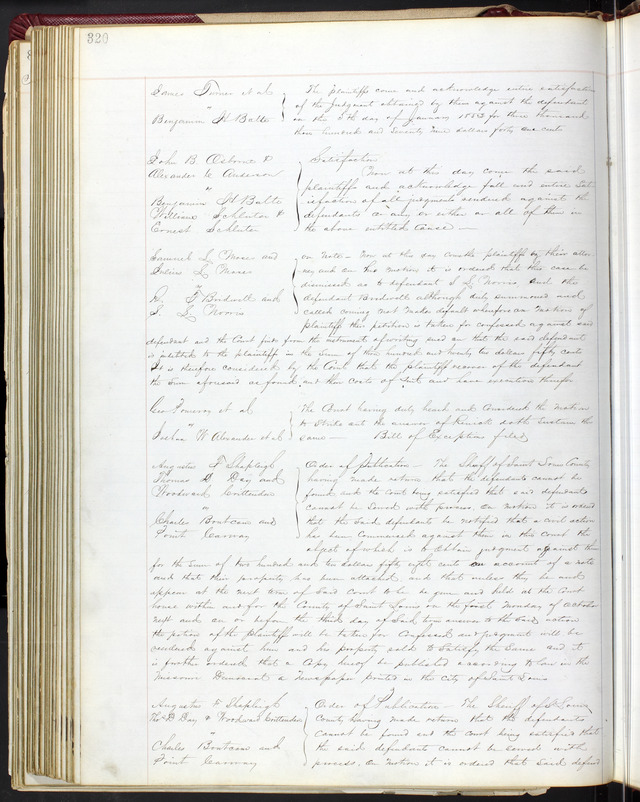 320
James Turner et al
"
Benjamin H Batte
The plaintiffs come and acknowledge entire satisfaction
of the Judgment obtained by them against the defendant
on the 5th day of January 1853 for three thousand
three hundred and seventy nine dollars forty one cents
John B. Osborne &
Alexander W Anderson
"
Benjamin H Batte
William Schlueter &
Ernest Schlueter
Satisfaction
Now at this day come the said
plaintiffs and acknowledge full and entire sat-
isfaction of all judgments rendered against the
defendants or any or either or all of them in
the above entitled cause —
Samuel L Moses and
L Moses
"
Bridwell and
S L Norris
on Note — Now at this day comes the plaintiffs by their attor-
ney and on his motion it is ordered that this case be
dismissed as to defendant S L Norris and the
defendant Bridwell although duly summoned and
called coming not makes default wherefore on motion of
plaintiff this petition is taken for confessed against said
defendant and the Court find from the instrument of writing sued on that the said defendant
is indebted to the plaintiff in the sum of three hundred and twenty two dollars fifty cents
It is therefore considered by the Court that the plaintiff recover of the defendant
the sum aforesaid as found and their costs of suit and have execution therefor
Geo Pomeroy et al
"
W Alexander et al
The Court having duly heard and considered the motion
to strike out the answer of doth sustain the
same — Bill of Exceptions filed
Augustus F Shapleigh
Thomas D Day and
Woodward Crittenden
"
Charles and
Point
Order of Publication — The Sheriff of Saint Louis County
having made return that the defendants cannot be
found and the court being satisfied that said defendants
cannot be served with process, on motion it is ordered
that the said defendants be notified that a civil action
has been commenced against them in this court the
object of which is to obtain judgment against them
for the sum of two hundred and ten dollars fifty eight cents on account of a note
and that their property has been attached and that unless they be and
appear at the next term of said Court to be begun and held at the Court
house within and for the County of Saint Louis on the first Monday of October
next and on or before the third day of said term answer to the said action
the petition of the plaintiff will be taken for Confessed and judgment will be
rendered against him and his property sold to satisfy the same and it
is further ordered that a Copy hereof be published according to law in the
Missouri Democrat a Newspaper printed in the city of Saint Louis
Augustus F Shapleigh
Th D Day & Woodward Crittenden
"
Charles and
Point
Order of Publication — The Sheriff of St Louis
County having made return that the defendants
cannot be found and the court being satisfied that
the said defendants cannot be served with
process, on motion it is ordered that said defend